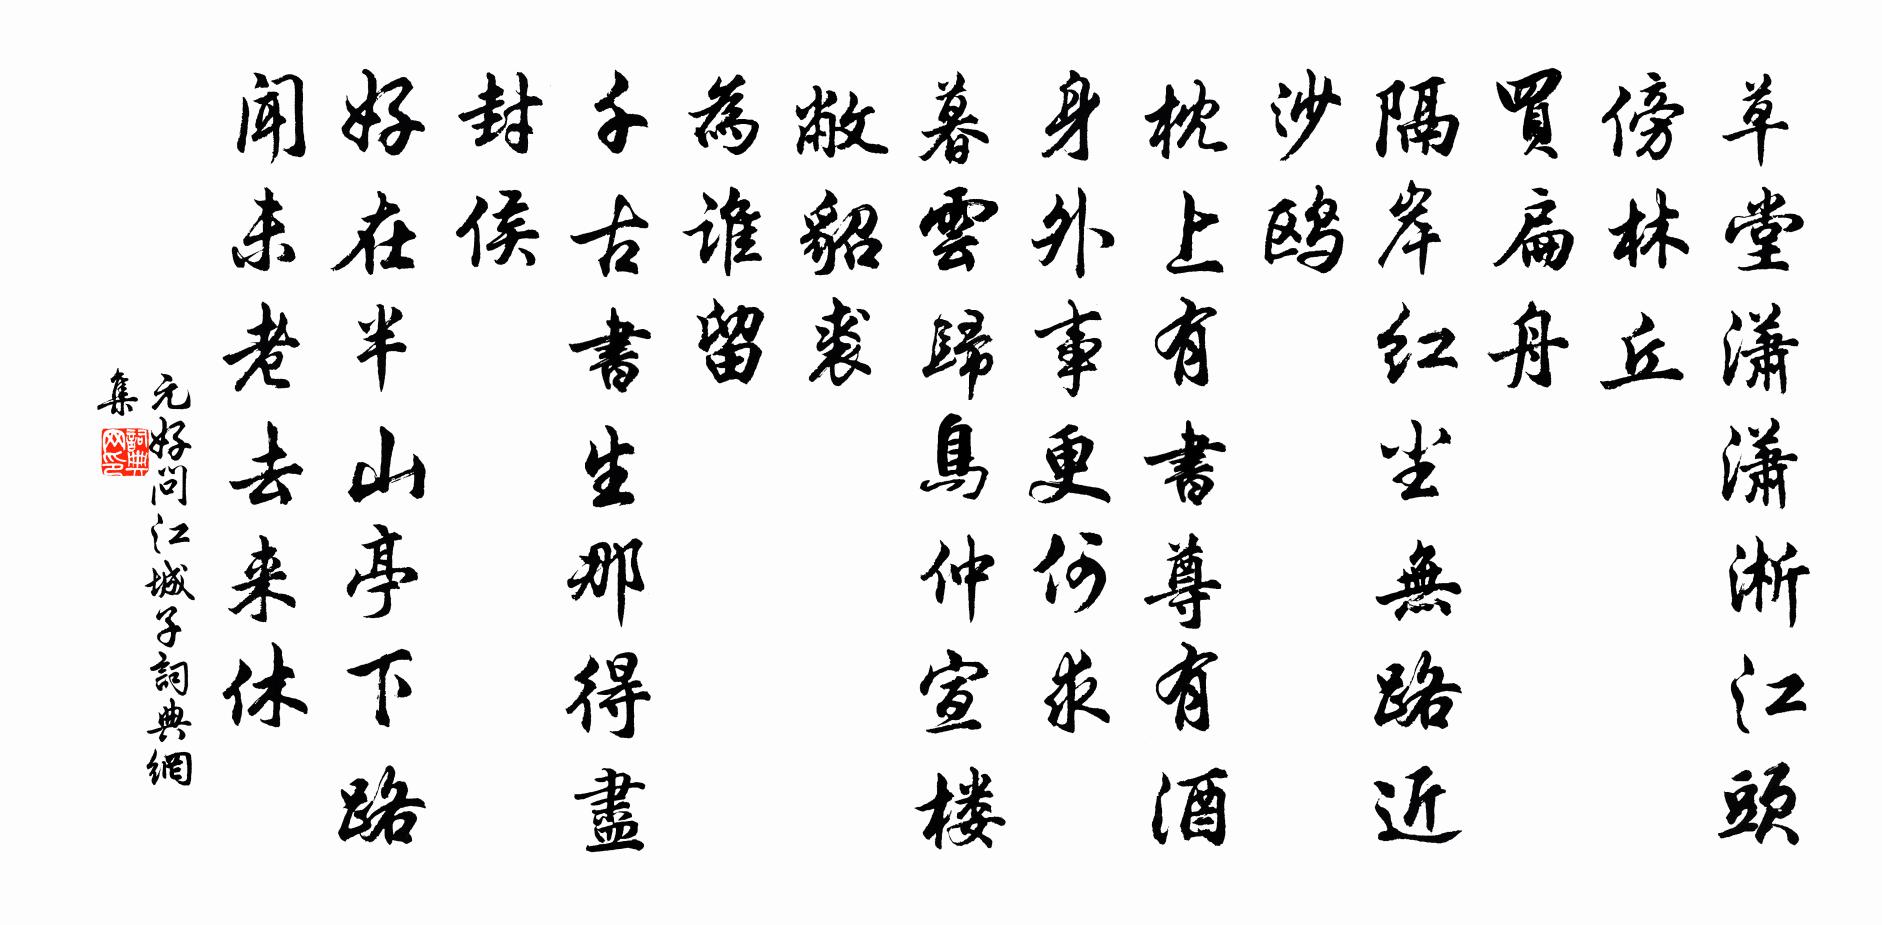 草堂潇潇淅江頭
傍林丘
買扁舟
隔岸红尘無路近
沙鸥
枕上有書尊有酒
身外事更何求
暮雲歸鳥仲宣楼
敝貂裘
為谁留
千古書生那得盡
封侯
好在半山亭下路
闻未老去来休
元好问江城子詞典網
集
詞典网印